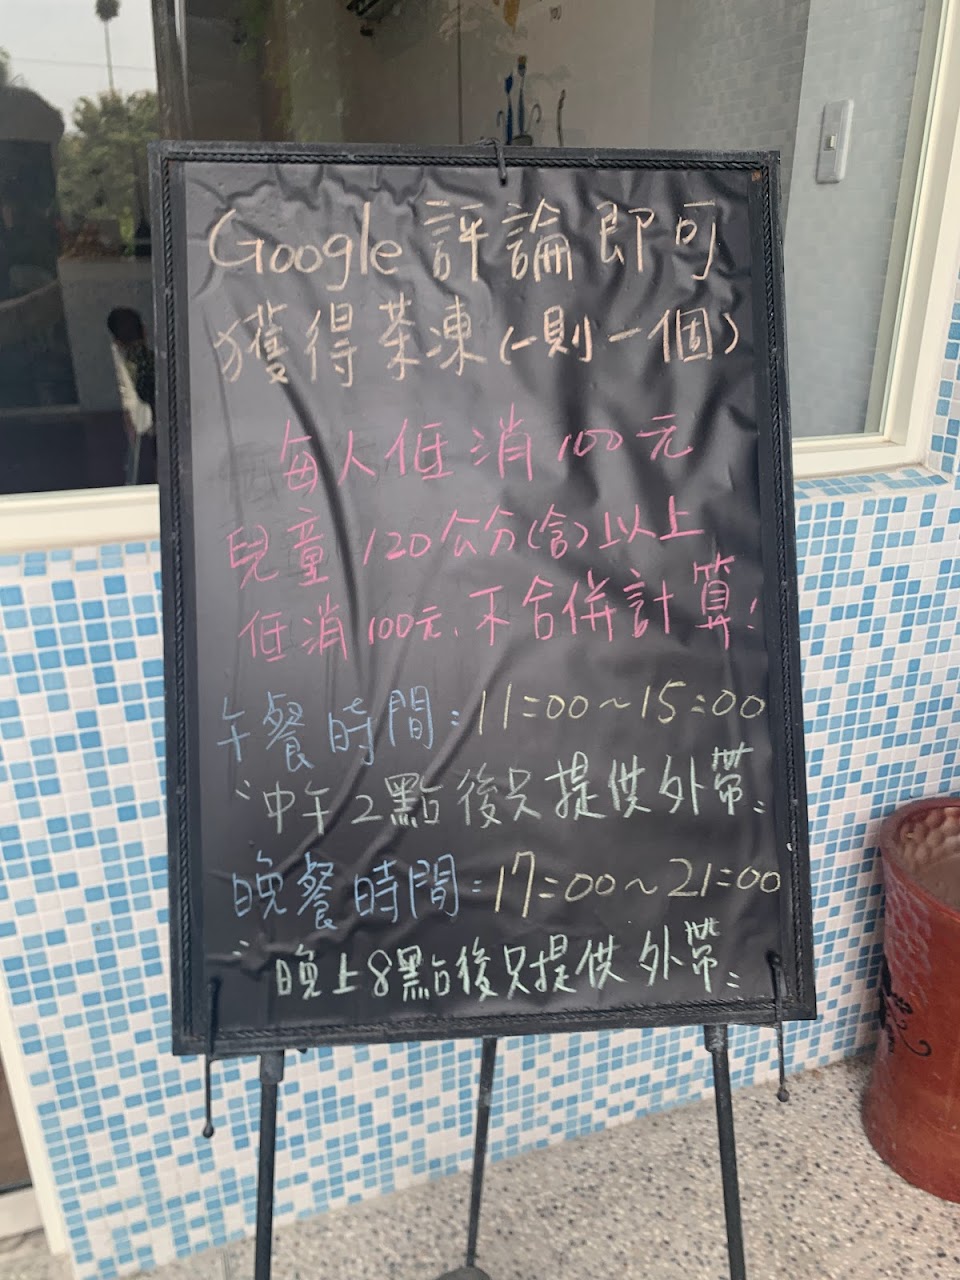 Google 評論即可
獲得茶凍(一則一個)
每人低消100元
兒童120公分(含)以上
低消100元、不合併計算!
午餐時間:11:00~15:00
"中午2點後只提供外帶"
晚餐時間:17:00~21:00
"晚上8點後只提供外帶"